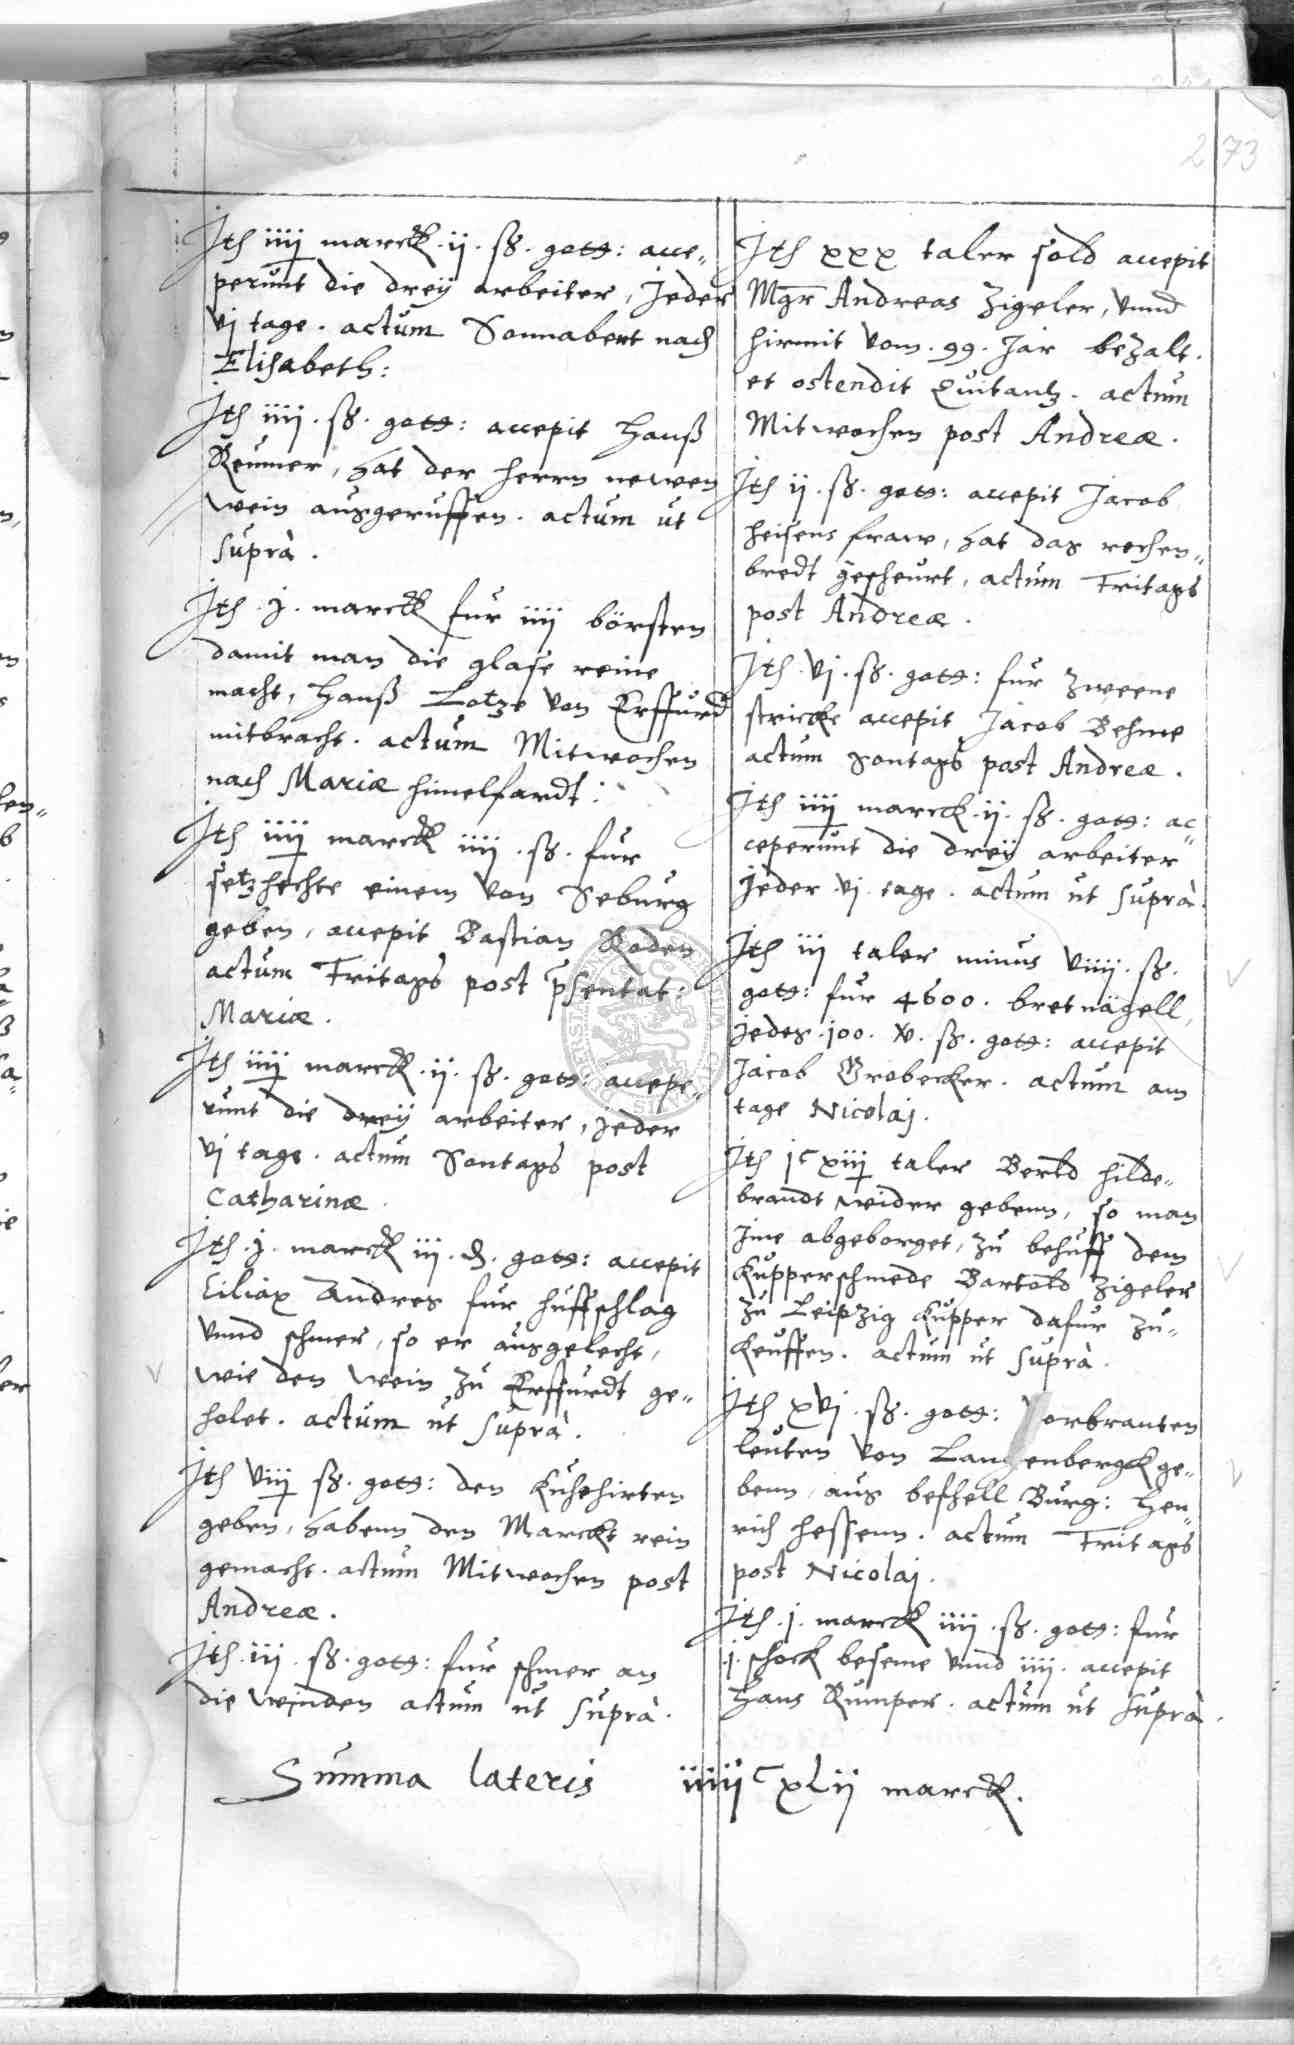 273
Jth iiij marck. ij. sß. gotts: acce„
perunt die dreÿ arbeiter, Jeder
vj tage. actum Sonnabent nach
Elisabeth:
Jth iiij. sß. gotts: accepit Hanß
Reumer, hat der herrn newen
wein ausgeruffen. actum ut
suprà.
Jth. j. marck fur iiij börsten
damit man die glase reine
macht, Hanß Lotze von Erffurd
mitbracht. actum Mitwochen
nach Mariæ himelfardt:
Jth iiij marck iiij. sß. fur
setzhechte einem von Seburg
geben, accepit Bastian Roden
actum Fritags post p̄sentat:
Mariæ.
Jth iiij marck. ij. sß. gotts: accepe„
runt die dreÿ arbeiter, jeder
vj tage. actum Sontags post
Catharinæ.
Jth. j. marck iij. d. gotts: accepit
Ciliax Andres fur huffschlag
vnnd schmer, so er ausgelecht,
wie den wein zu Erffurdt ge„
holet. actum ut suprà.
Jth viij sß. gotts: den Kuhehirten
geben, habenn den Marckt rein
gemacht. actum Mitwochen post
Andreæ.
Jth. iij. sß. gotts: fur schmer an
die winden actum ut suprà.
Jth xxx taler sold accepit
Mgr Andreas Zigeler, vnnd
hirmit vom. 99. Jar bezalt.
et ostendit Quitantz. actum
Mitwochen post Andreæ.
Jth ij. sß. gotts: accepit Jacob
heisens fraw, hat das rechen„
bredt gescheurt, actum Fritags
post Andreæ.
Jth. vj. sß. gotts: fur zweene
stricke accepit Jacob Behme
actum Sontags post Andreæ.
Jth iiij marck. ij. sß. gotts: ac„
ceperunt die dreÿ arbeiter
jeder. vj. tage. actum ut suprà.
Jth iij taler minus viiij. sß.
gotts: fur 4600. bretnägell,
jedes. 100. v. sß. gotts: accepit
Jacob Grobecker. actum am
tage Nicolaj.
Jth jc xiij taler Bertld hilde„
brandt wider gebenn, so man
Jme abgeborget, zu behuff dem
Kupperschmede Bartold Zigeler
zu Leipzig Kupper dafur zu„
Keuffen. actum ut suprà.
Jth xvj. sß. gotts: Vorbranten
leuten von Langenbergk ge„
benn, aus befhell Burg: Hen„
rich hessenn. actum Fritags
post Nicolaj.
Jth. j. marck iiij. sß. gotts: fur
.j. schock beseme vnnd iiij. accepit
Hans Rumper. actum ut suprà.
Summa lateris iiiijc xlij marck.